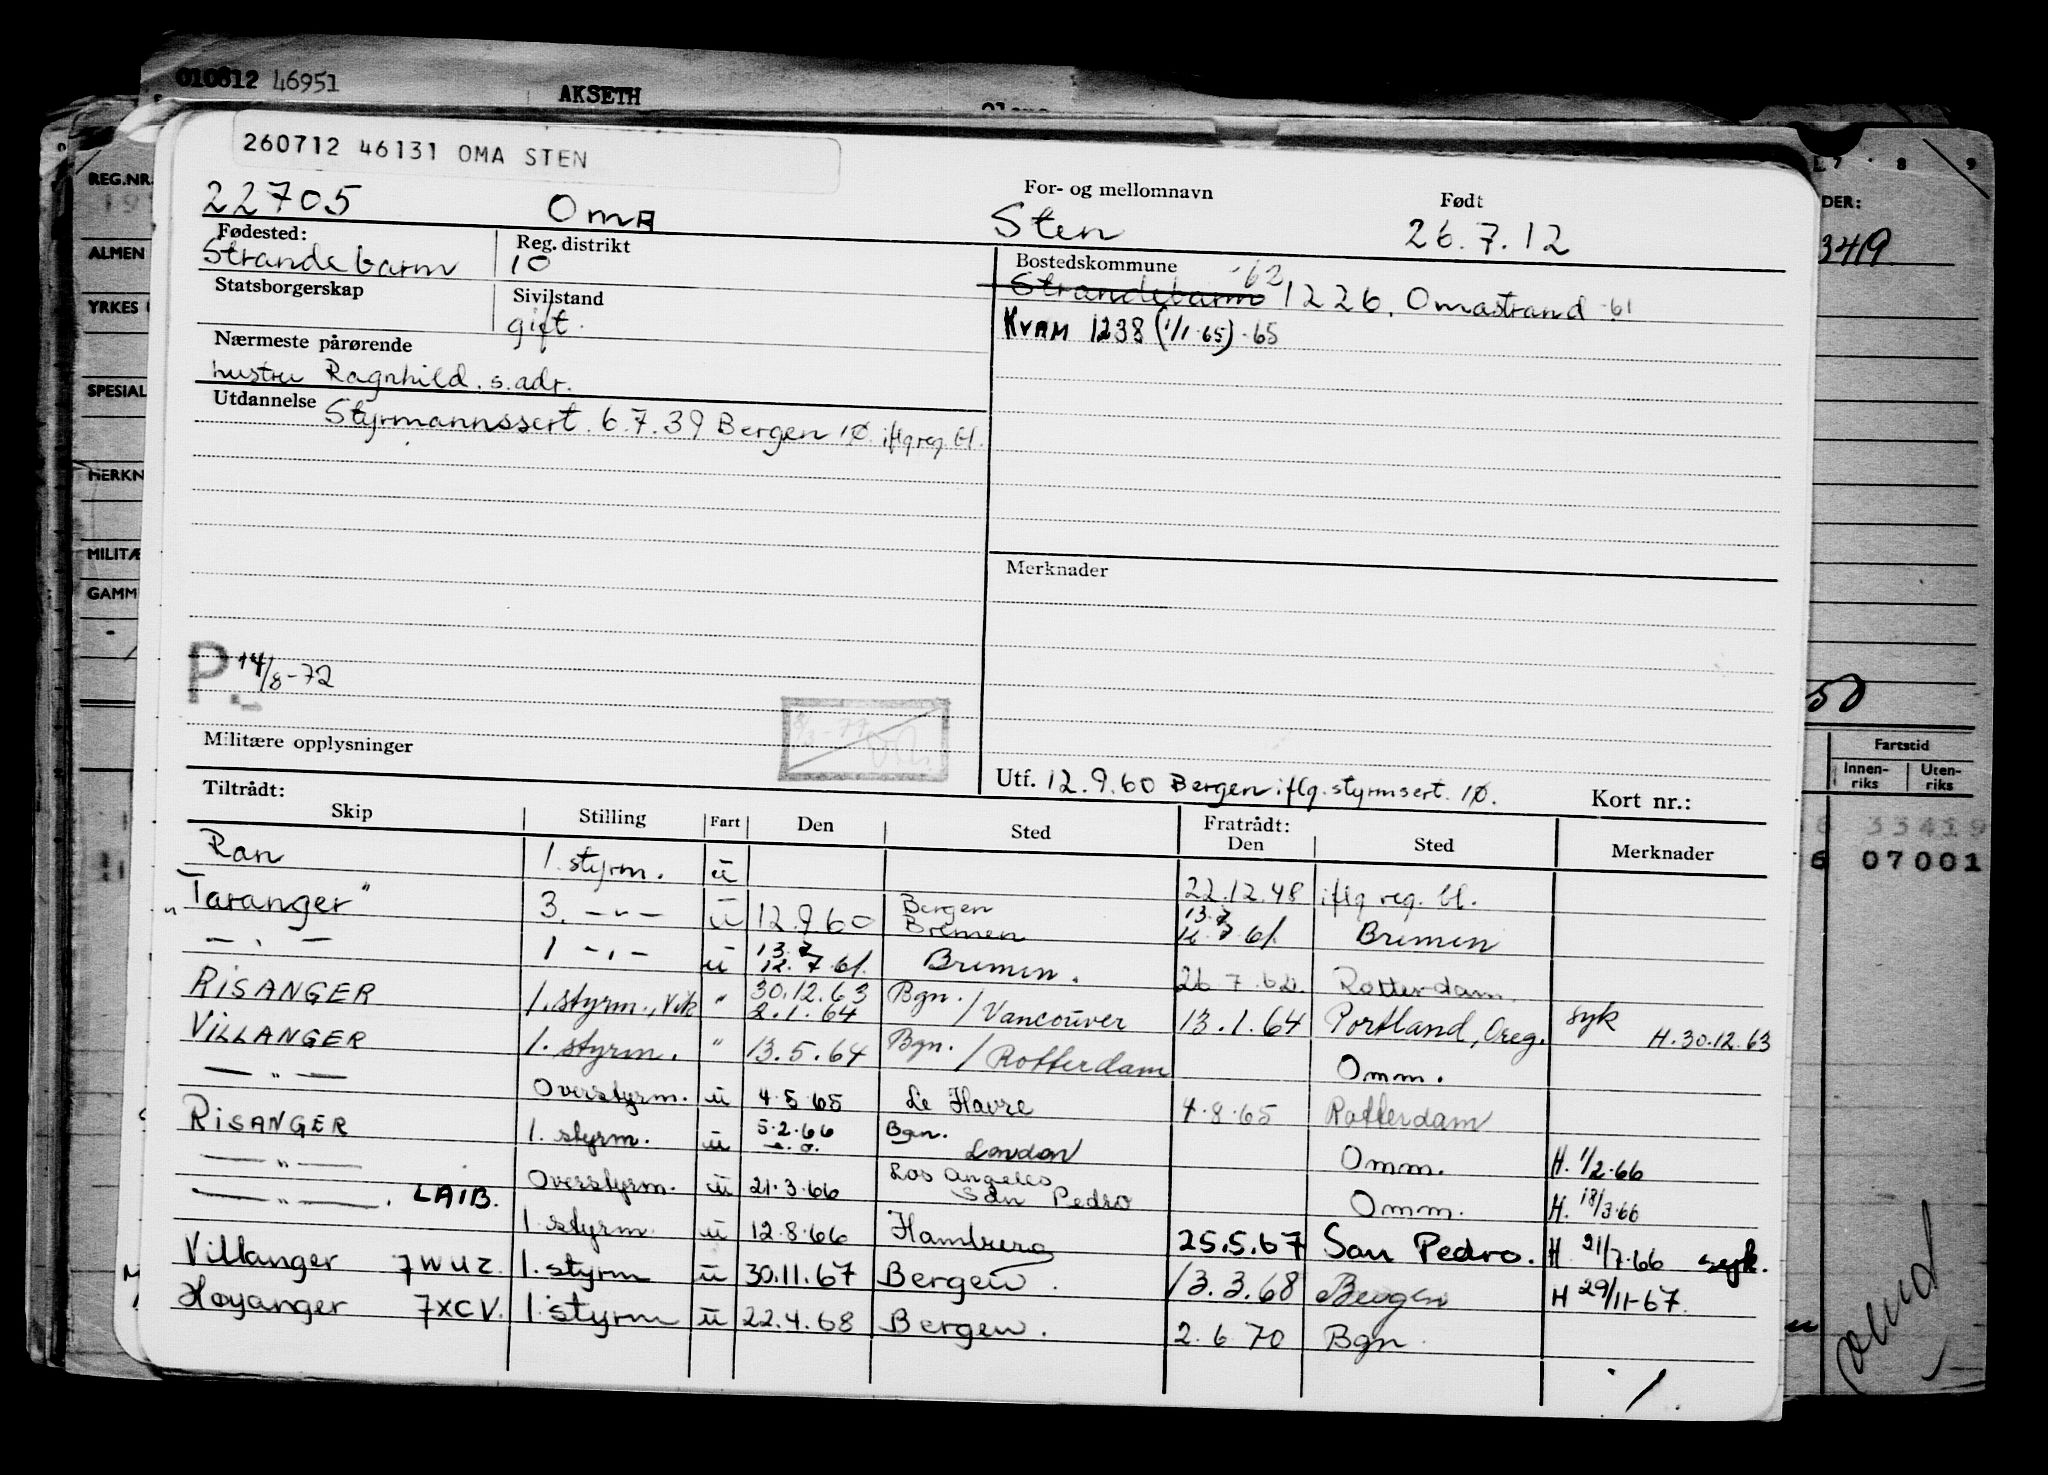 010812 46951
AKSETH
260712 46131 OMA STEN
22705 OmA Sten 26.7.12
For- og mellomnavn Født
Fødested: Reg. distrikt Bostedskommune
Strandebarm 10 Strandebarm -62 1226, Omastrand -61
Statsborgerskap Sivilstand
gift. KVAM 1238 (1/1-65) -65
Nærmeste pårørende
hustru Ragnhild, s. adr.
Utdannelse Styrmannssert. 6.7.39 Bergen 10. iflg reg. bl.
Merknader
P. 14/8-72
Militære opplysninger
Utf. 12.9.60 Bergen iflg. styrmsert. 10. Kort nr.:
Tiltrådt: Fratrådt:
Skip Stilling Fart Den Sted Den Sted Merknader
Ran 1. styrm. ū 22.12.48 iflg reg. bl.
"Taranger" 3. -"- ū 12.9.60 Bergen Bremen 13.7 12.7.61. Bremen
-"- 1 -"- ū 13.7 12.7.61. Bremen. 26.7.62. Rotterdam.
RISANGER 1. styrm., vik " 30.12.63 2.1.64 Bgn. / Vancouver 13.1.64 Portland, Oreg. syk H. 30.12.63
VILLANGER 1. styrm. " 13.5.64 Bgn. / Rotterdam Omm.
-"- Overstyrm. ū 4.5.65 Le Havre 4.8.65 Rotterdam
RISANGER 1. styrm. ū 5.2.66 Bgn. London Omm. H. 1/2.66
-"- Overstyrm. ū 21.3.66 Los Angeles San Pedro Omm. H. 18/3.66
-"-. LAIB. 1 styrm. ū 12.8.66 Hamburg 25.5.67 San Pedro. H. 21/7.66 syk.
Villanger 7WUZ. 1. styrm ū 30.11.67 Bergen. 13.3.68 Bergen H 29/11-67.
Høyanger 7XCV. 1. styrm ū 22.4.68 Bergen. 2.6.70 Bgn.
REG.NR.
ALMEN
YRKES
SPESIAL
MERKN
MILITÆ
GAMM
7 8 9
DER:
3419
50
Fartstid
Innen-riks Uten-riks
33419
07001